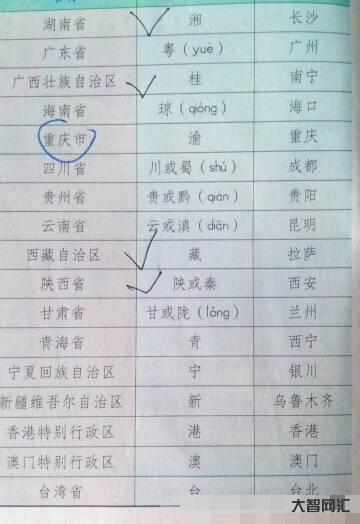 湖南省 湘 长沙
广东省 粤（yuè） 广州
广西壮族自治区 桂 南宁
海南省 琼（qióng） 海口
重庆市 渝 重庆
四川省 川或蜀（shǔ） 成都
贵州省 贵或黔（qián） 贵阳
云南省 云或滇（diān） 昆明
西藏自治区 藏 拉萨
陕西省 陕或秦 西安
甘肃省 甘或陇（lǒng） 兰州
青海省 青 西宁
宁夏回族自治区 宁 银川
新疆维吾尔自治区 新 乌鲁木齐
香港特别行政区 港 香港
澳门特别行政区 澳 澳门
台湾省 台 台北
大智网汇